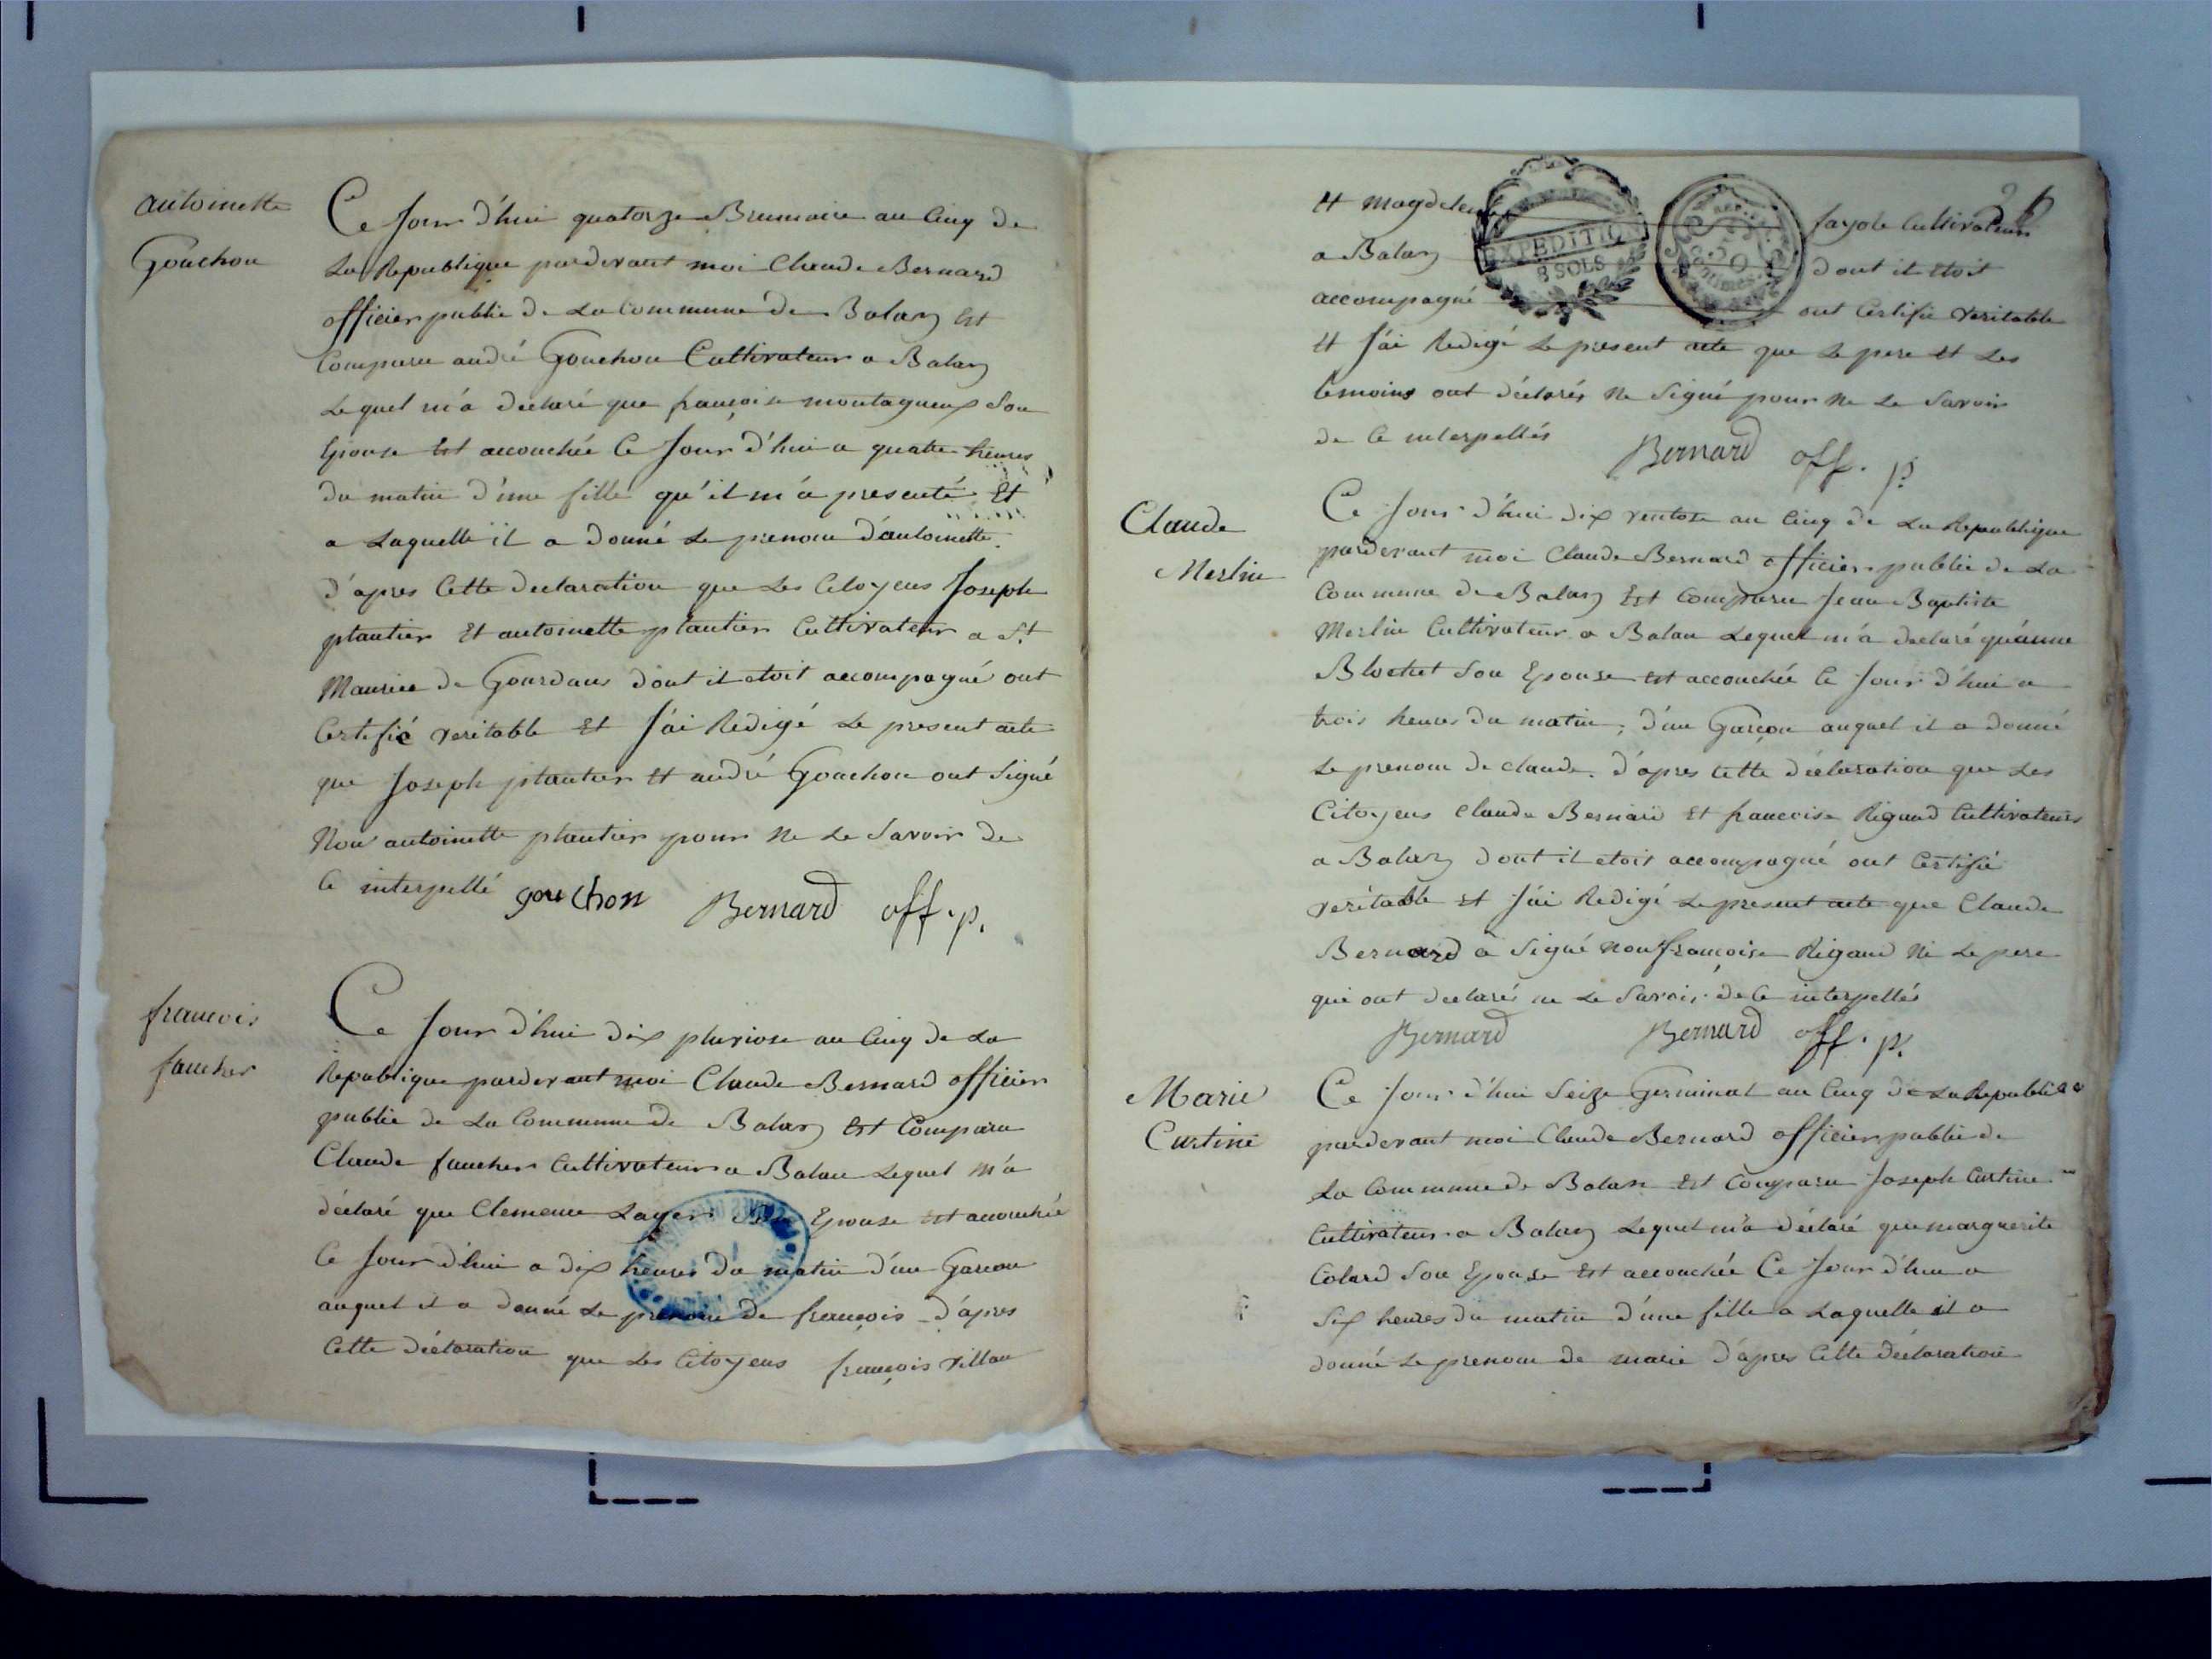 antoinette
Gouchon
Ce Jour d'hui quatorze Brumaire an Cinq de
La Republique pardevant moi Claude Bernard
officier public de La Commune de Balan Est
Comparu andré Gouchon Cultivateur a Balan
Lequel m'a declaré que françoise montagneux Son
Epouse Est accouchée Ce Jour d'hui a quatre heures
du matin d'une fille qu'il m'a presenté Et
a Laquelle il a donné Le prenom d'antoinette.
d'apres Cette declaration que Les Citoyens Joseph
plantier Et antoinette plantier Cultivateur a St
Maurice de Gourdans dont il etoit accompagné ont
Certifié veritable Et J'ai Redigé Le present acte
que Joseph plantier Et andré Gouchon ont Signé
Non antoinette plantier pour Ne Le Savoir de
Ce interpellé gouchon Bernard off. p.
francois
faucher
Ce Jour d'hui dix pluviose an Cinq de La
Republique pardevant moi Claude Bernard officier
public de La Commune de Balan Est Comparu
Claude faucher Cultivateur a Balan Lequel M'a
déclaré que Clemence Layer Son Epouse Est accouchée
Ce Jour d'hui a dix heures du matin d'un Garcon
auquel il a donné Le prenom de françois d'apres
Cette déclaration que Les Citoyens françois villan
26
Et Magdeleine fayole Cultivateurs
a Balan dont il etoit
accompagné ont Certifié veritable
EXPEDITION
8 SOLS
Et J'ai Redigé Le present acte que Le pere Et Les
temoins ont déclarés Ne Signé pour Ne Le Savoir
de Ce interpellés Bernard off. p.
Claude
Merlin
Ce Jour d'hui dix ventose an Cinq de La Republique
pardevant moi Claude Bernard officier public de La
Commune de Balan Est Comparu Jean Baptiste
Merlin Cultivateur a Balan Lequel m'a declaré qu'anne
Blochet Son Epouse Est accouchée Ce Jour d'hui a
trois heures du matin, d'un Garçon auquel il a donné
Le prenom de claude. d'apres Cette déclaration que Les
Citoyens Claude Bernard Et francoise Rigaud Cultivateurs
a Balan dont il etoit accompagné ont Certifié
veritable Et J'ai Redigé Le present acte que Claude
Bernard a Signé non françoise Rigaud Ni Le pere
qui ont declarés ne Le Savoir de Ce interpellés
Bernard Bernard off. p.
Marie
Curtine
Ce Jour d'hui Seize Germinal an Cinq de La Republique
pardevant moi Claude Bernard officier public de
La Commune de Balan Est Comparu Joseph Curtine
Cultivateur a Balan Lequel m'a déclaré que marguerite
Colard Son Epouse Est accouchée Ce Jour d'hui a
Six heures du matin d'une fille a Laquelle il a
donné Le prenom de marie d'apres Cette déclaration